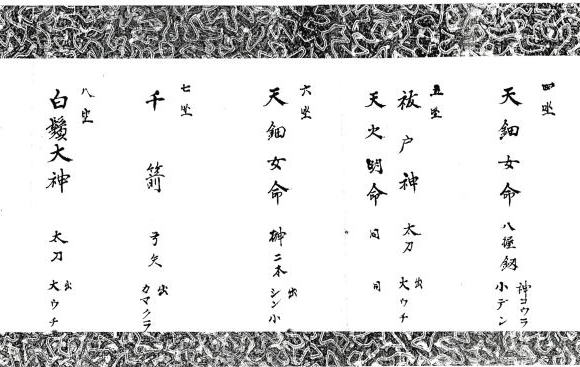 四坐
天鈿女命 八握釼 神コウラ
小デン
五坐
祓戸神 太刀 出
大ウチ
天火明命 同 同
六坐
天鈿女命 榊二本 出
シン小
七坐
千箭 弓矢 出
カマクラ
八坐
白鬚大神 太刀 出
大ウチ